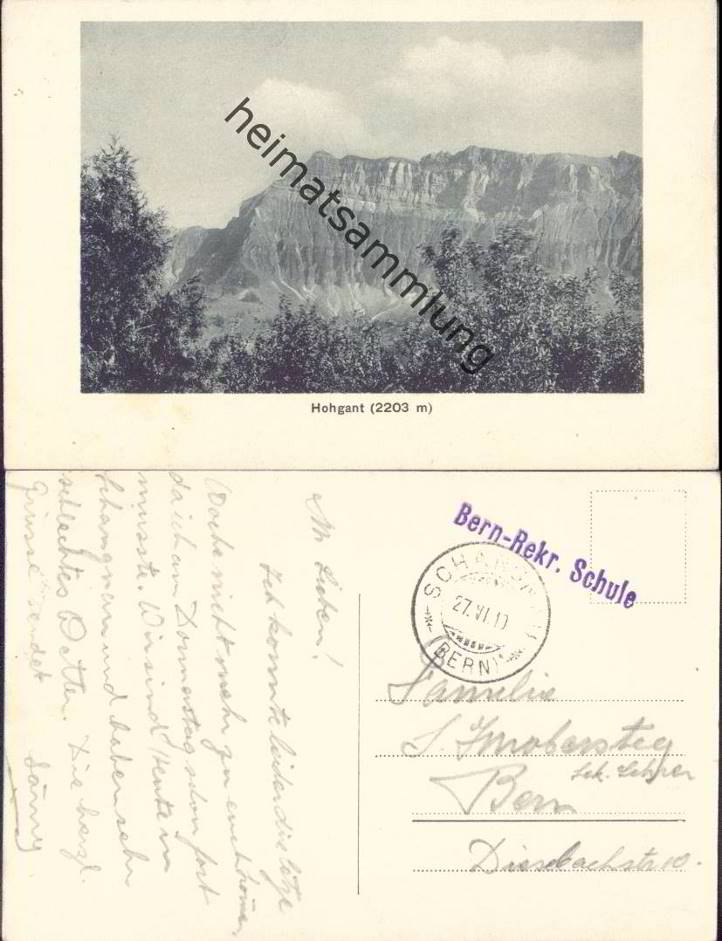 heimatsammlung
Hohgant (2203 m)
M. Lieben!
Ich konnte leider die letze
Woche nicht mehr zu euch
da ich am Donnerstag schon fort
musste. Wir sind heute in
Schangnau und haben sehr
schlechtes Wetter. Die herzl.
Grüsse sendet
Bern-Rekr. Schule
27.VI.
(BERN)
Familie
S. Imobersteg
Sek. Lehrer
Bern
Diesbachstr 10.